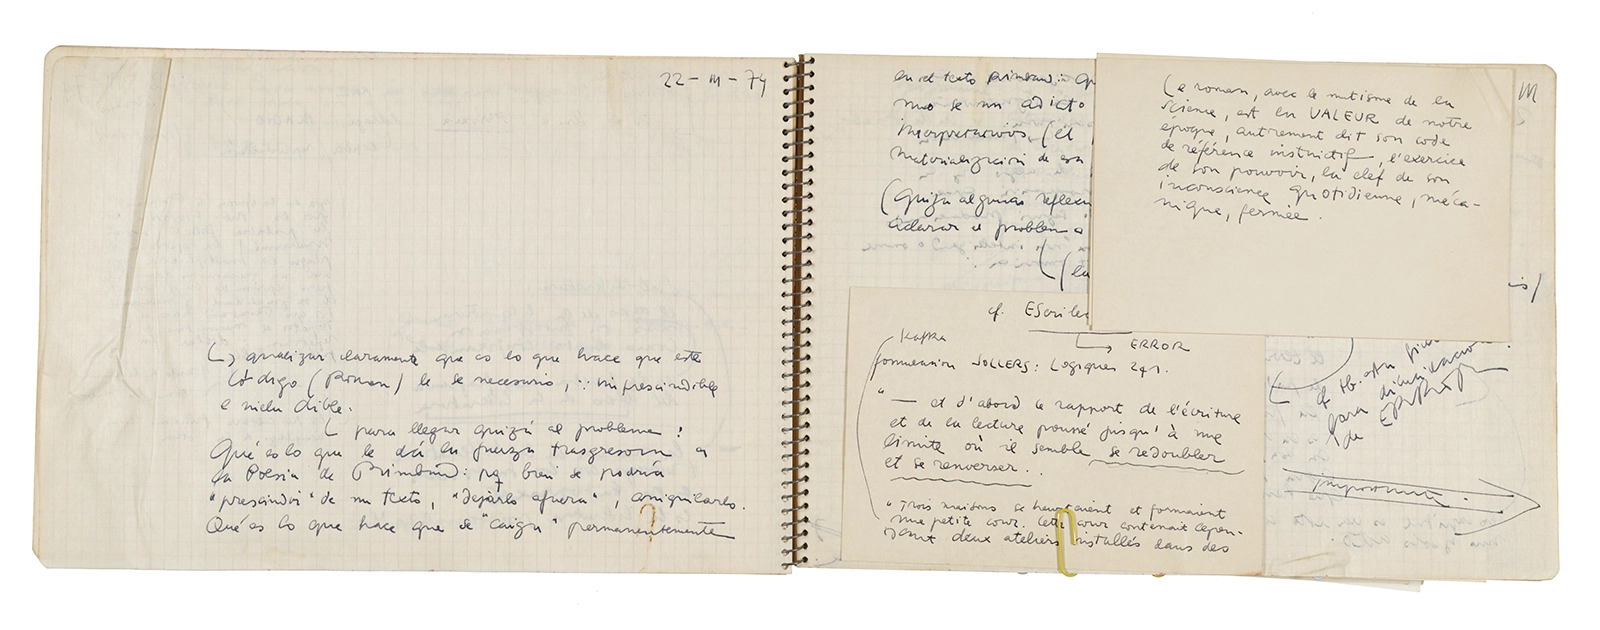 22 - III - 74
↳ analizar claramente que es lo que hace que este
Código (Roman) le se necesario, imprescindible
e ineludible.
↳ para llegar quizá al problema:
Qué es lo que le dá la fuerza trasgresora a
la Poesia de Rimbaud: pq bien se podría
"prescindir" de su texto, "dejarlo afuera", aniquilarlo.
Qué es lo que hace que se "caiga" permanentemente
en el texto Rimbaud:
no se un adicto
interpretación (el
materialización de
(Quizá algunas reflexi
aclarar el problema
(la
Le roman, avec le mutisme de la
science, est la VALEUR de notre
époque, autrement dit son code
de référence instinctif, l'exercice
de son pouvoir, la clef de son
inconscience quotidienne, méca-
nique, fermée.
III
cf. Escrile
↳ ERROR
Kafka
SOLLERS: Logiques 291.
" — et d'abord le rapport de l'écriture
et de la lecture poussé jusqu'à une
limite où il semble se redoubler
et se renverser..
"Trois maisons se heurtaient et formaient
une petite cour. Cette cour contenait cepen-
dant deux ateliers installés dans des
is)
cf. tb. otra
para
de
importante.